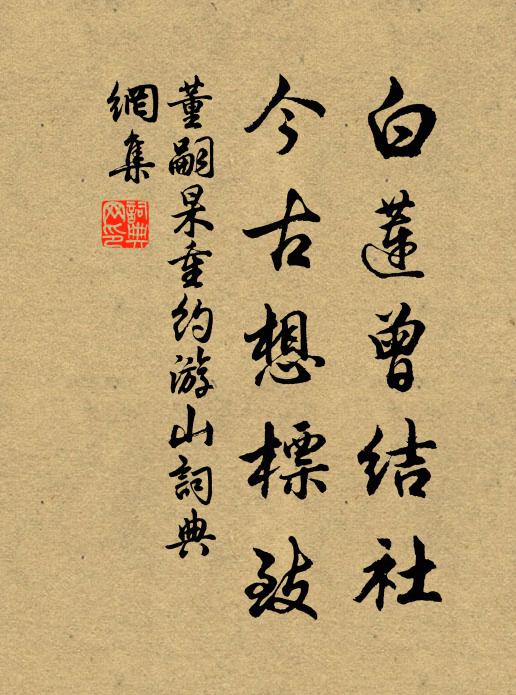 白蓮曾結社
今古想標致
董嗣杲重約游山詞典
網集
詞典
网印